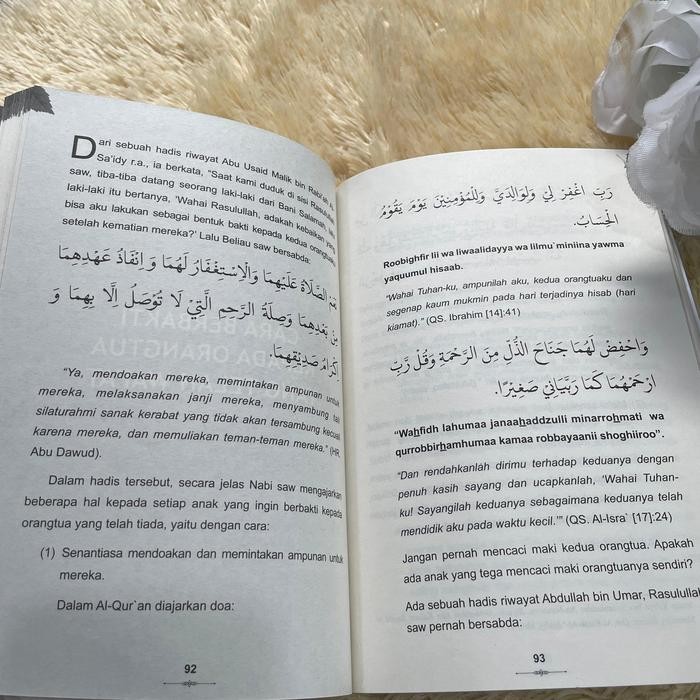 Dari sebuah hadis riwayat Abu Usaid Malik bin Rabi'ah
Sa'idy r.a., ia berkata, "Saat kami duduk di sisi Rasulullah
saw, tiba-tiba datang seorang laki-laki dari Bani Salamah,
laki-laki itu bertanya, 'Wahai Rasulullah, adakah kebaikan yang
bisa aku lakukan sebagai bentuk bakti kepada kedua orangtuaku
setelah kematian mereka?' Lalu Beliau saw bersabda:
نَعَمْ الصَّلَاةُ عَلَيْهِمَا وَالْاِسْتِغْفَارُ لَهُمَا وَإِنْفَاذُ عَهْدِهِمَا
مِنْ بَعْدِهِمَا وَصِلَةُ الرَّحِمِ الَّتِيْ لَا تُوْصَلُ إِلَّا بِهِمَا وَ
إِكْرَامُ صَدِيْقِهِمَا.
"Ya, mendoakan mereka, memintakan ampunan untuk
mereka, melaksanakan janji mereka, menyambung tali
silaturahmi sanak kerabat yang tidak akan tersambung kecuali
karena mereka, dan memuliakan teman-teman mereka." (HR.
Abu Dawud).
Dalam hadis tersebut, secara jelas Nabi saw mengajarkan
beberapa hal kepada setiap anak yang ingin berbakti kepada
orangtua yang telah tiada, yaitu dengan cara:
(1) Senantiasa mendoakan dan memintakan ampunan untuk
mereka.
Dalam Al-Qur`an diajarkan doa:
92
رَبِّ اغْفِرْ لِيْ وَلِوَالِدَيَّ وَلِلْمُؤْمِنِيْنَ يَوْمَ يَقُوْمُ
الْحِسَابُ.
Roobighfir lii wa liwaalidayya wa lilmu`miniina yawma
yaquumul hisaab.
"Wahai Tuhan-ku, ampunilah aku, kedua orangtuaku dan
segenap kaum mukmin pada hari terjadinya hisab (hari
kiamat)." (QS. Ibrahim [14]:41)
وَاخْفِضْ لَهُمَا جَنَاحَ الذُّلِّ مِنَ الرَّحْمَةِ وَقُلْ رَبِّ
ارْحَمْهُمَا كَمَا رَبَّيَانِيْ صَغِيْرًا.
"Wahfidh lahumaa janaahaddzulli minarrohmati wa
qurrobbirhamhumaa kamaa robbayaanii shoghiiroo".
"Dan rendahkanlah dirimu terhadap keduanya dengan
penuh kasih sayang dan ucapkanlah, 'Wahai Tuhan-
ku! Sayangilah keduanya sebagaimana keduanya telah
mendidik aku pada waktu kecil.'" (QS. Al-Isra` [17]:24)
Jangan pernah mencaci maki kedua orangtua. Apakah
ada anak yang tega mencaci maki orangtuanya sendiri?
Ada sebuah hadis riwayat Abdullah bin Umar, Rasulullah
saw pernah bersabda:
93